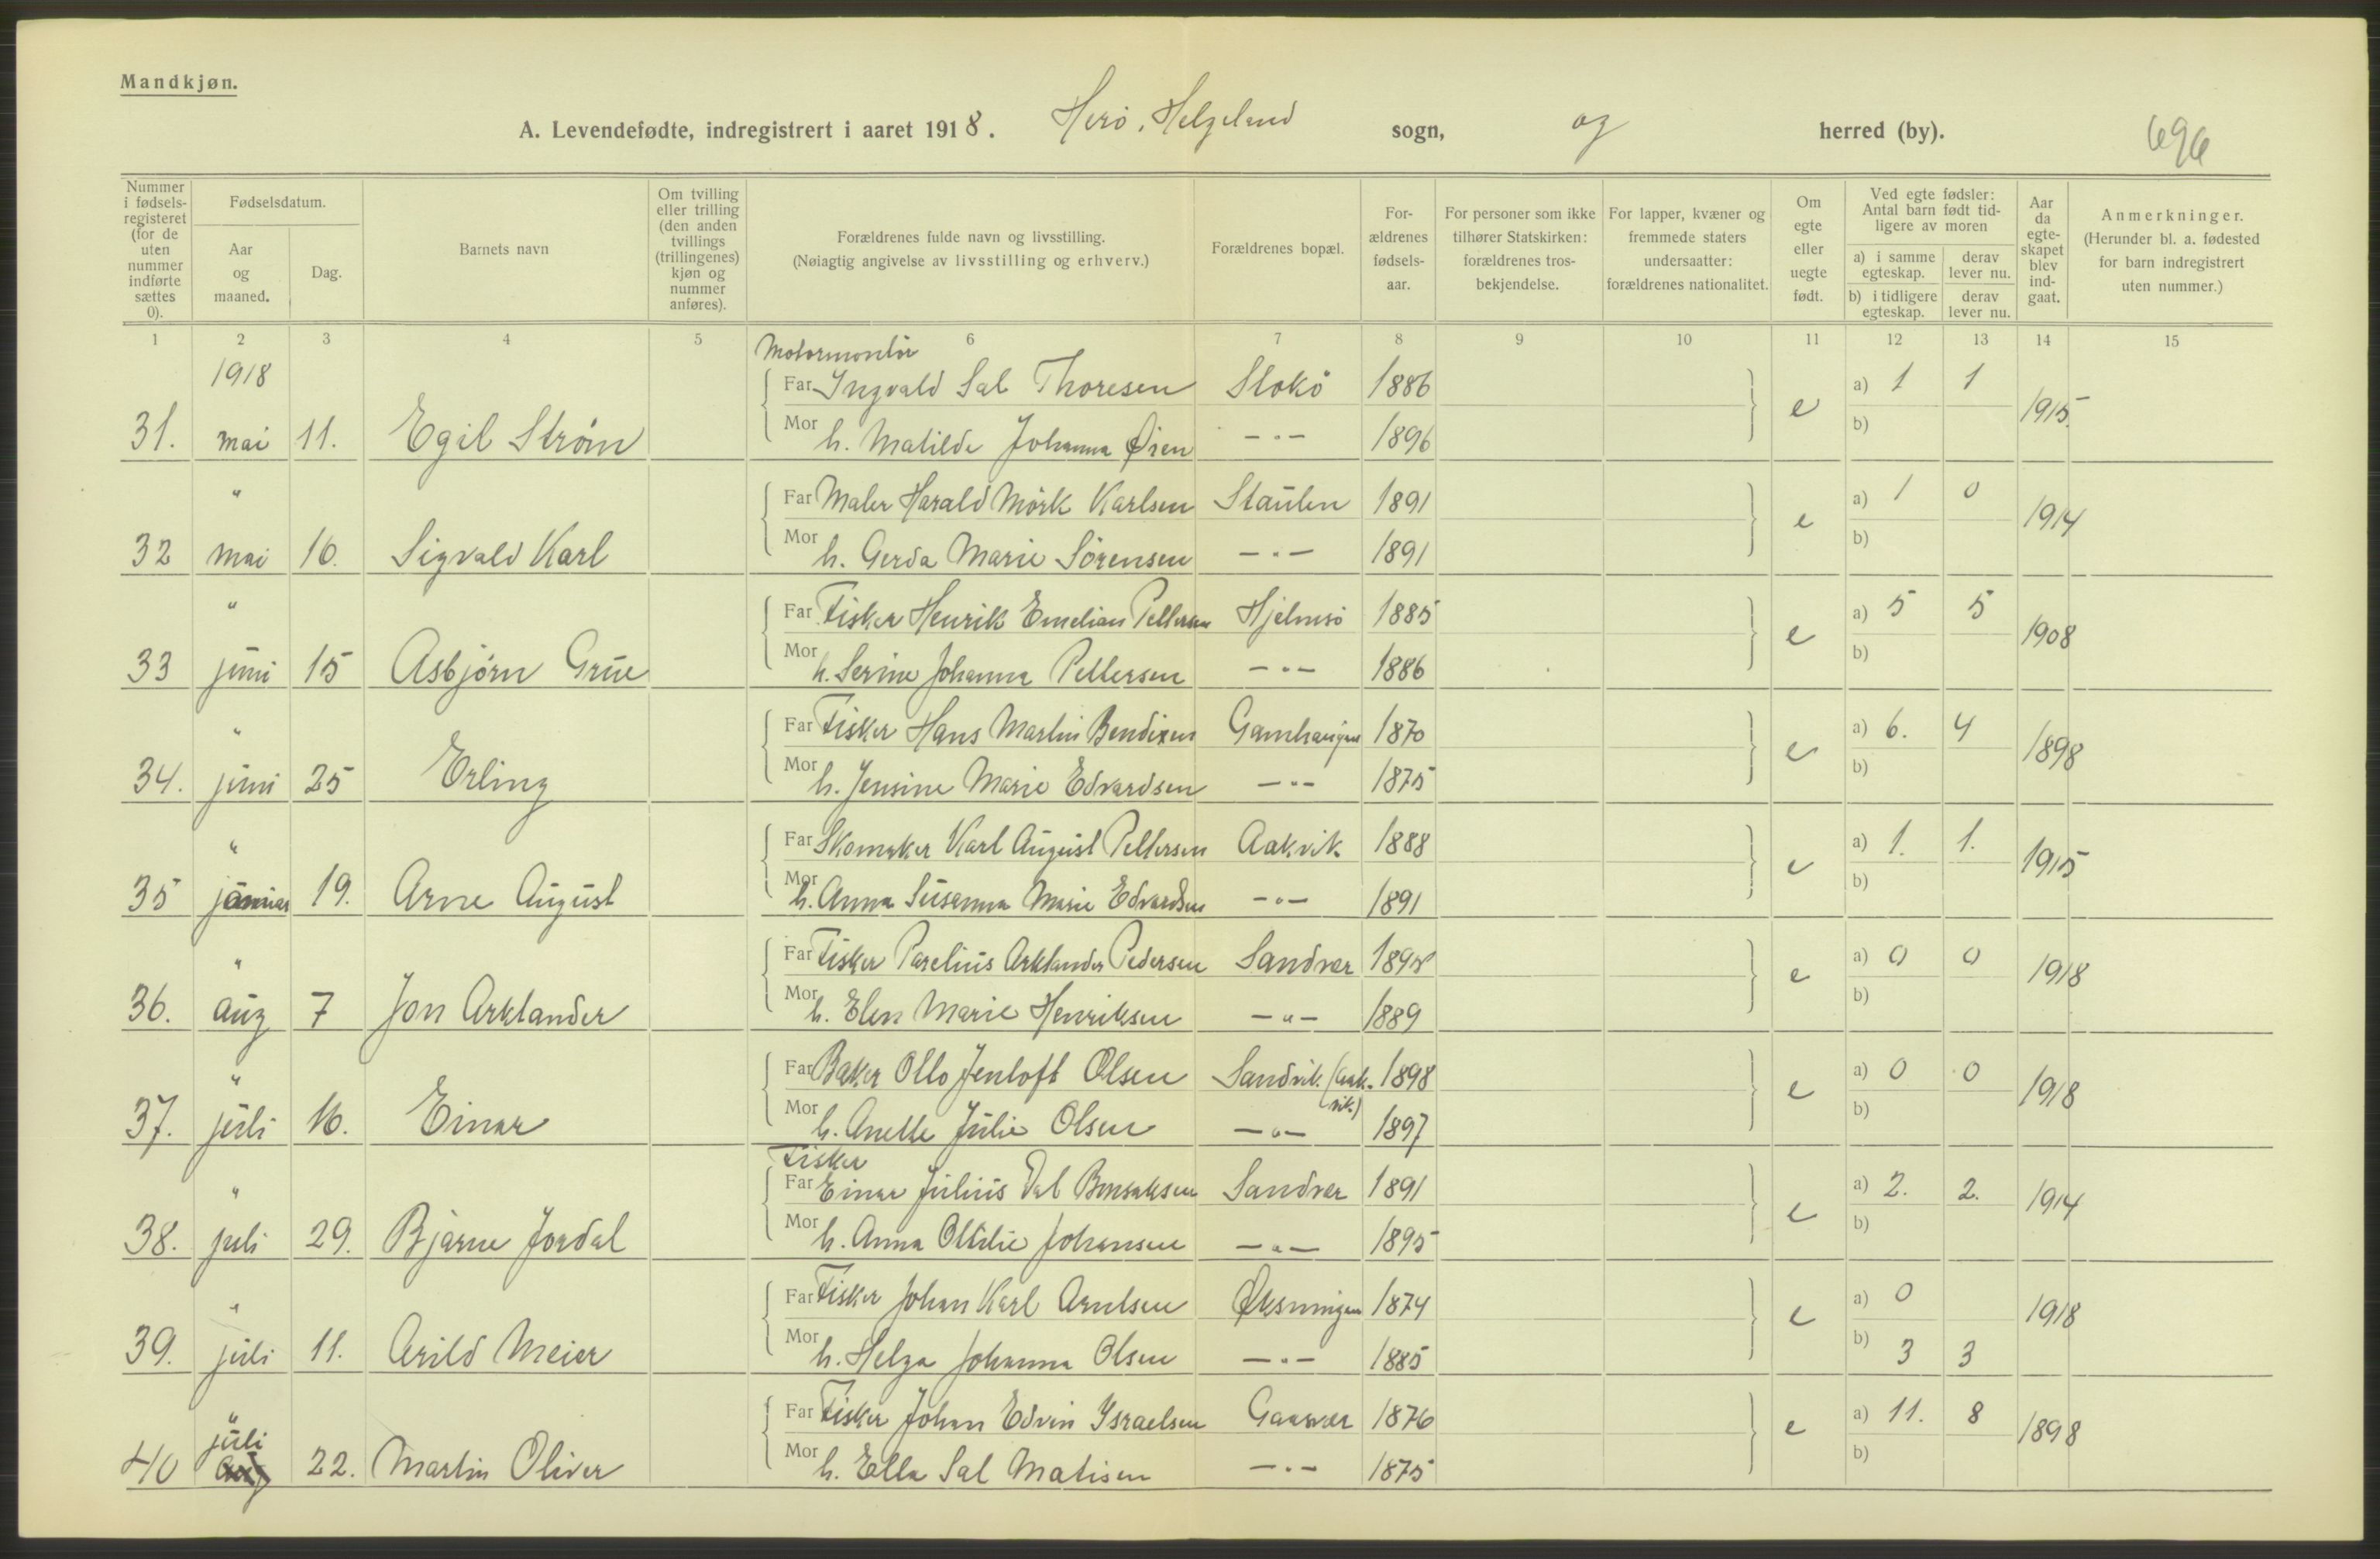 Mandkjøn.
A. Levendefødte, indregistrert i aaret 1918. Herö, Helgeland sogn, og herred (by). 696
Nummer i fødsels-registeret (for de uten nummer indførte sættes 0).
Fødselsdatum.
Aar og maaned.
Dag.
Barnets navn
Om tvilling eller trilling (den anden tvillings (trillingenes) kjøn og nummer anføres).
Forældrenes fulde navn og livsstilling.
(Nøiagtig angivelse av livsstilling og erhverv.)
Forældrenes bopæl.
For-ældrenes fødsels-aar.
For personer som ikke tilhører Statskirken: forældrenes tros-bekjendelse.
For lapper, kvæner og fremmede staters undersaatter: forældrenes nationalitet.
Om egte eller uegte født.
Ved egte fødsler: Antal barn født tid-ligere av moren
a) i samme egteskap.
derav lever nu.
b) i tidligere egteskap.
derav lever nu.
Aar da egte-skapet blev ind-gaat.
Anmerkninger.
(Herunder bl. a. fødested for barn indregistrert uten nummer.)
1 2 3 4 5 6 7 8 9 10 11 12 13 14 15
1918 Motormontör
Far Ingvald Sal Thoresen Stokö 1886 a) 1 1
31. mai 11. Egil Ström Mor h. Matilde Johanna Øien —"— 1896 e b) 1915.
" Far Maler Harald Mörk Karlsen Staulen 1891 a) 1 0
32 mai 16. Sigvald Karl Mor h. Gerda Marie Sörensen —"— 1891 e b) 1914
" Far Fisker Henrik Emelian Pettersen Hjelmsö 1885 a) 5 5
33 juni 15 Asbjörn Grue Mor h. Serine Johanna Pettersen —"— 1886 e b) 1908
" Far Fisker Hans Martin Bendixen 1870 a) 6. 4
34. juni 25 Erling Mor h. Jensine Marie Edvardsen —"— 1875 e b) 1898
" Far Skomaker Karl August Pettersen Aakvik 1888 a) 1. 1.
35 januar 19. Arne August Mor h. Anna Susanna Marie Edvardsen —"— 1891 e b) 1915
" Far Fisker Parelius Arklander Pedersen Sandvær a) 0 0
36. aug 7 Jon Arklander Mor h. Elen Marie Henriksen —"— 1889 e b) 1918
" Far Baker Otto Jentoft Olsen Sandvik (Aak-vik.) 1898 a) 0 0
37. juli 16. Einar Mor h. Anette Julie Olsen —"— 1897 e b) 1918
Fisker
" Far Einar Julius Dal Bensaksen Sandvær 1891 a) 2. 2.
38. juli 29. Bjarne Jordal Mor h. Anna Ottilie Johansen —"— 1895 e b) 1914
" Far Fisker Johan Karl Arntsen Øksningen 1874 a) 0
39. juli 11. Arild Meier Mor h. Helga Johanna Olsen —"— 1885 e b) 3 3 1918
" Far Fisker Johan Edvin Israelsen Gaasvær 1876 a) 11. 8
juli
40 aug 22. Martin Oliver Mor h. Ella Sal Matisen —"— 1875 e b) 1898